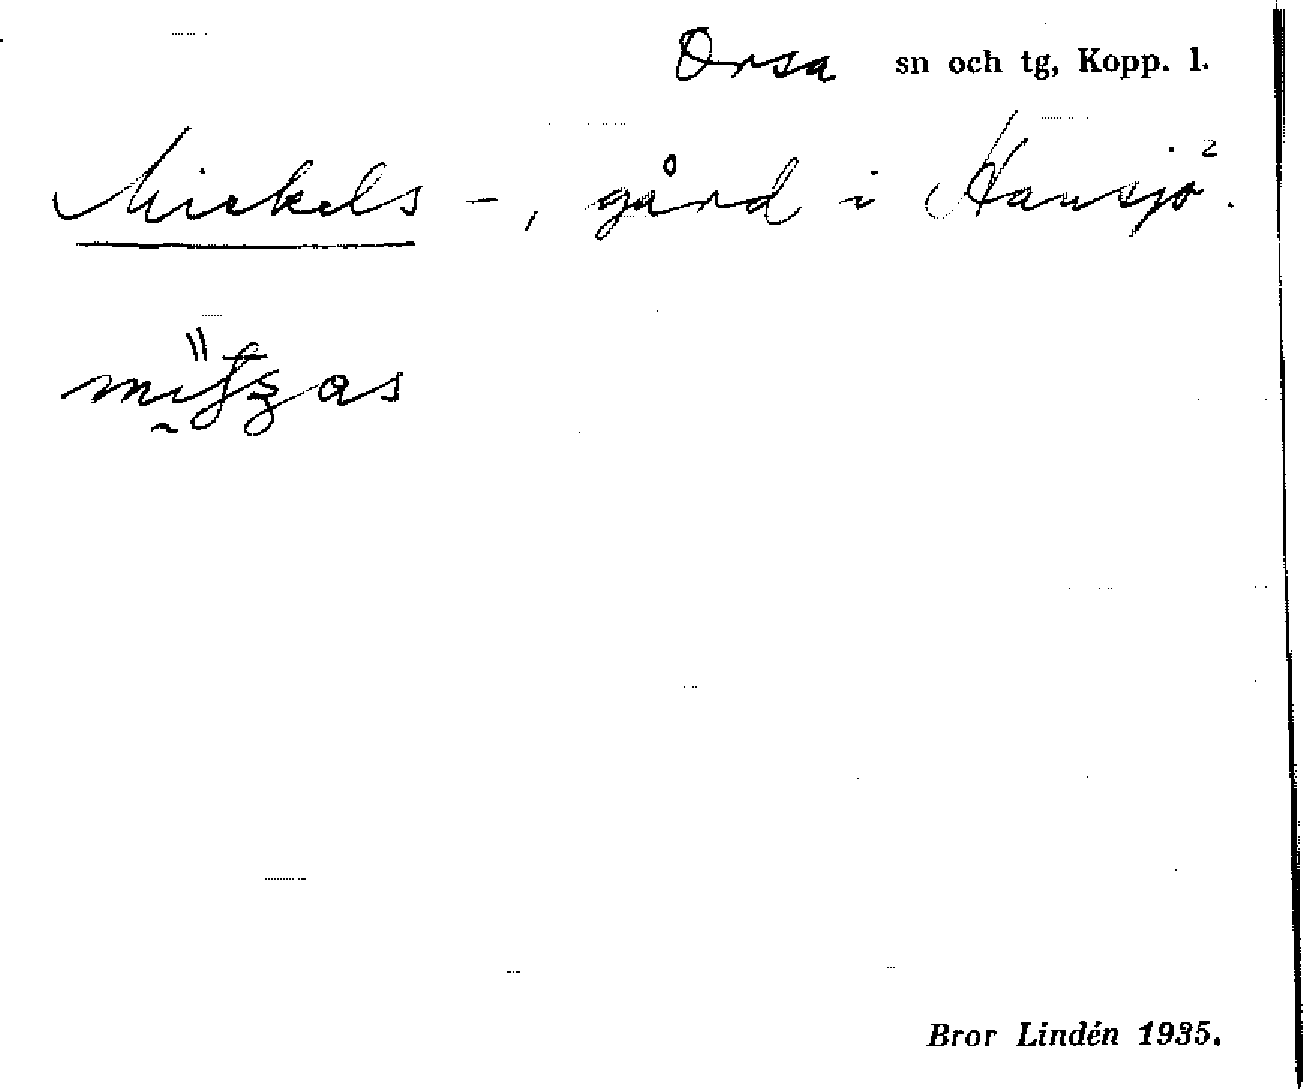 Orsa sn och tg, Kopp. l.
Mickels -, gård i Hansjö.
Bror Lindén 1935.